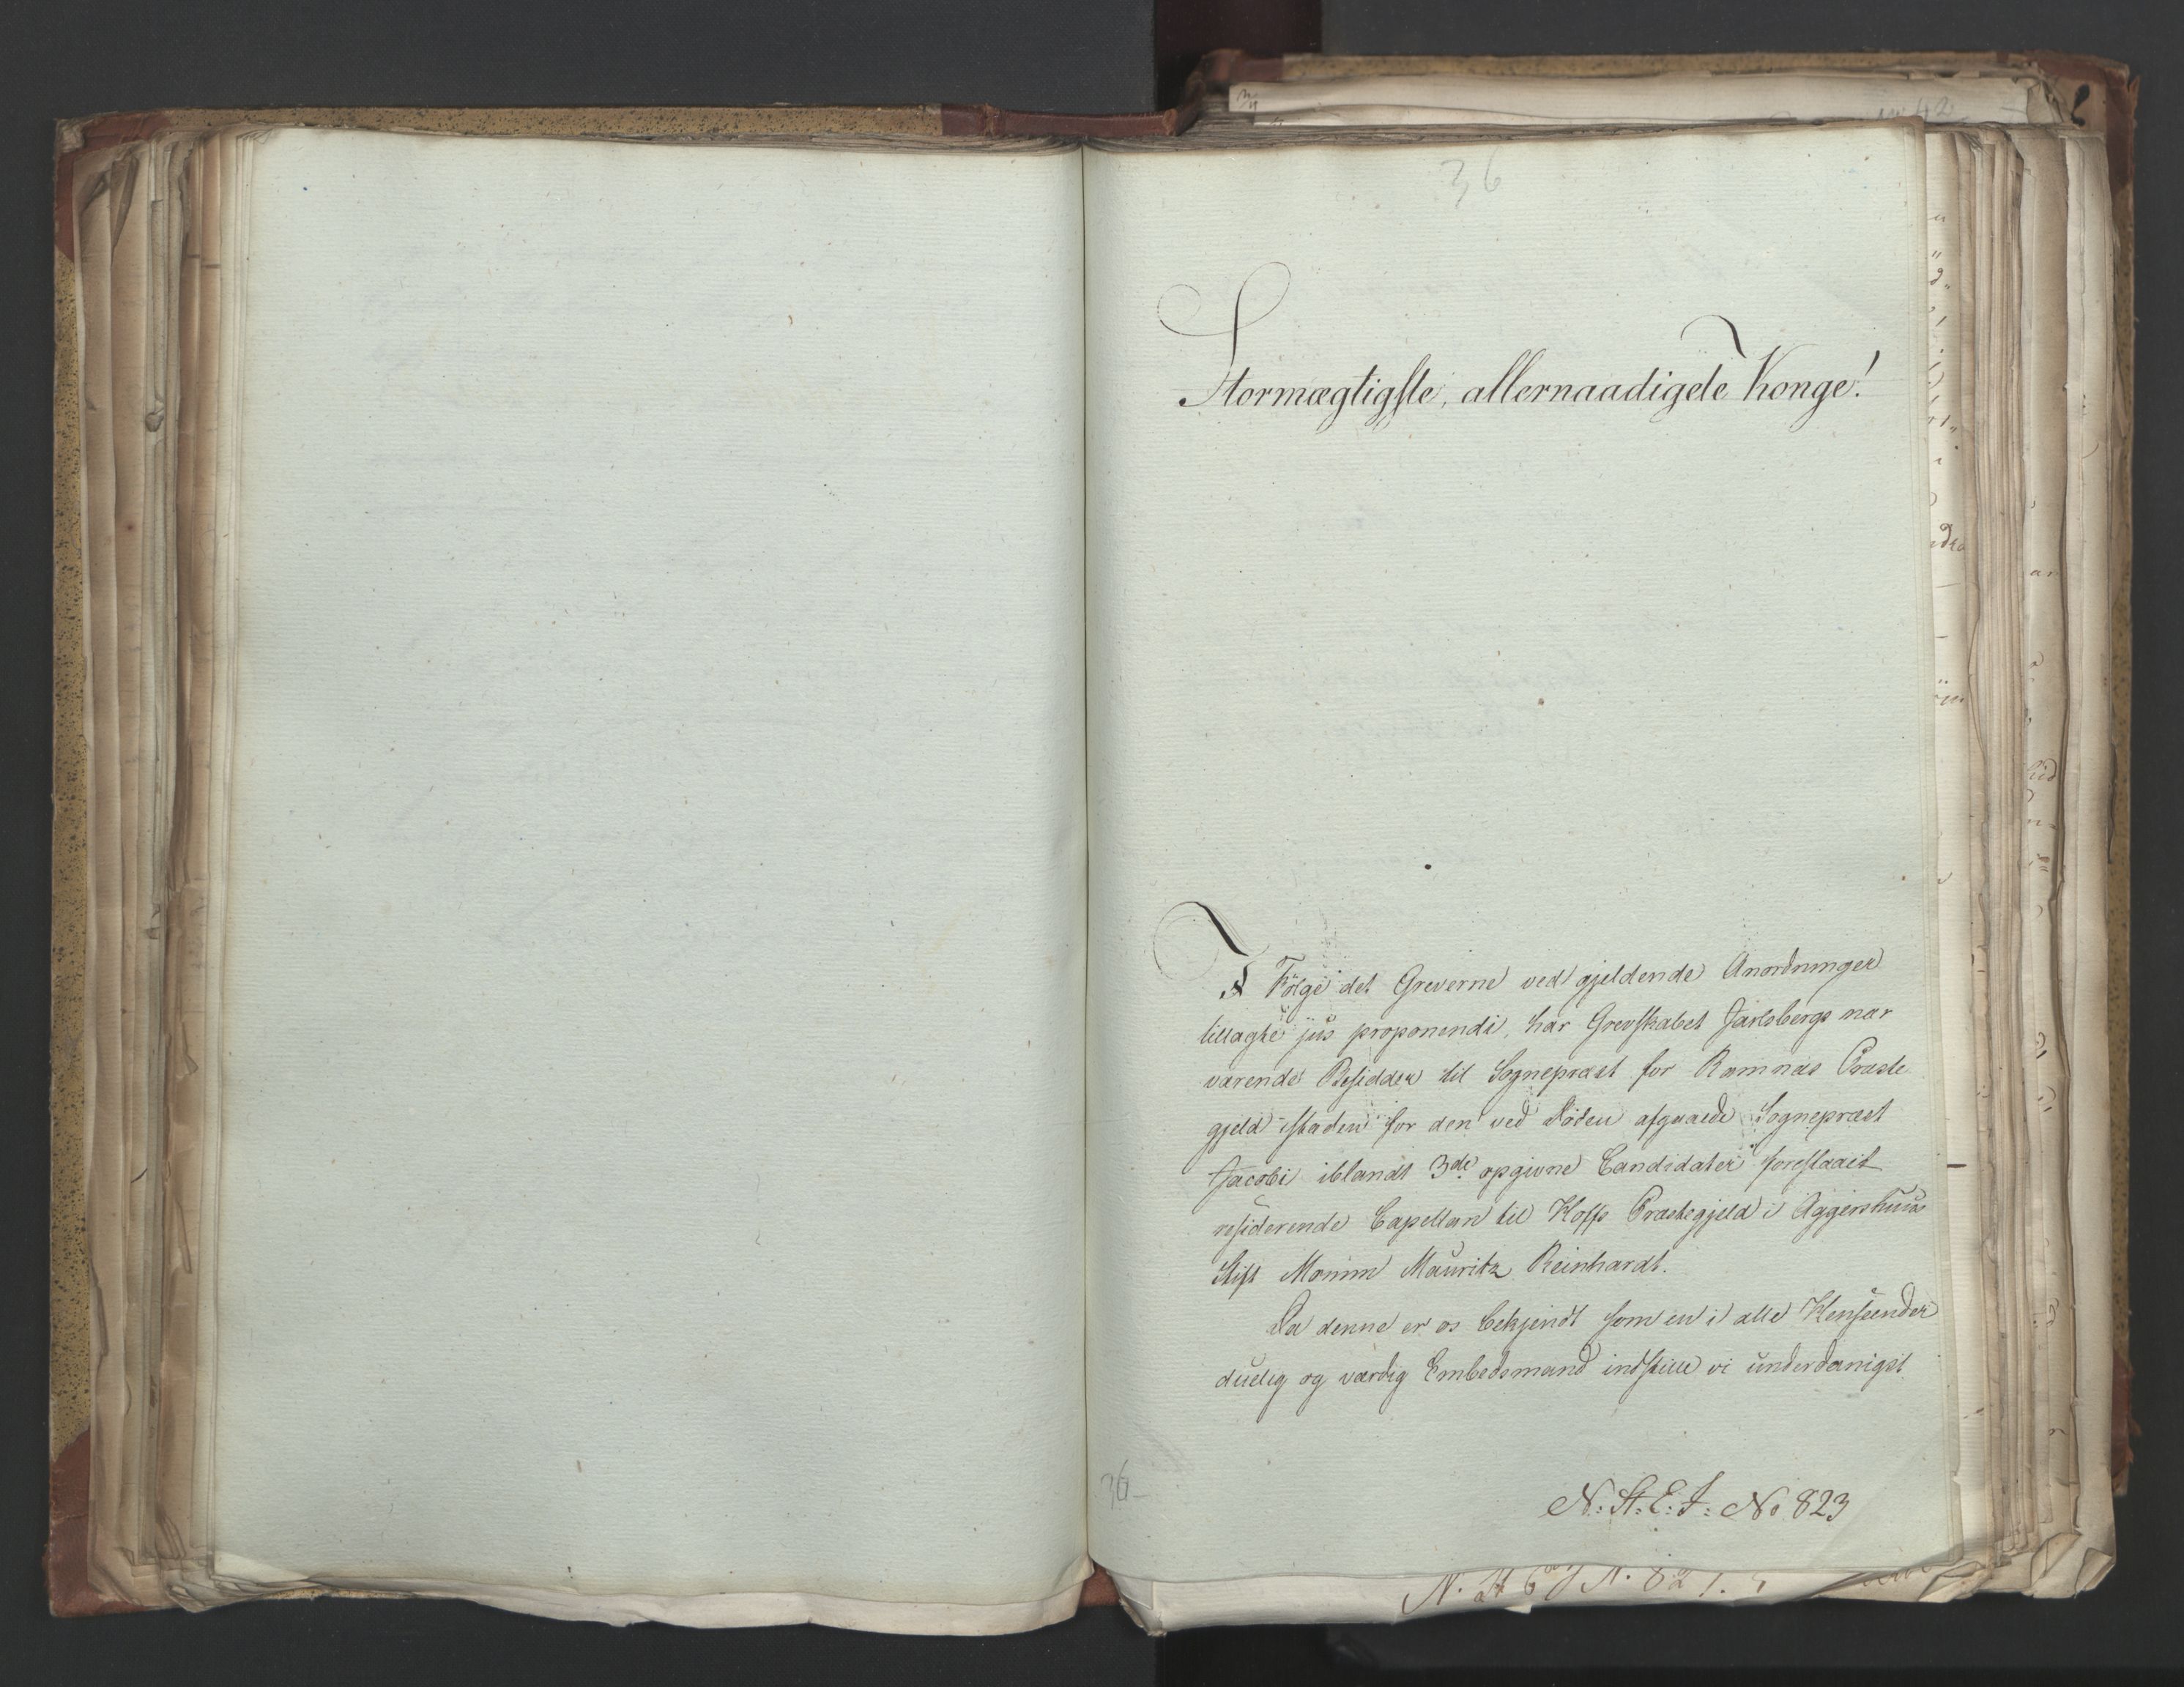 36
Stormægtigste, allernaadigste Konge!
I Følge det Greverne ved gjeldende Anordninger
tillagte jus proponendi, har Grevskabet Jarlsbergs nær
værende Besidder til Sognepræst for Ramnæs Præste
gjeld istaden for den ved Döden afgaaede Sognepræst
Jacobi iblandt 3de opgivne Candidater foreslaaet
residerende Capellan til Hoffs Præstegjeld i Aggershuus
Stift Monim Mauritz Reinhardt.
Da denne er os bekjendt som en i alle Henseender
duelig og værdig Embedsmand indstille vi underdanigst
36
N: St: E: J: No 823